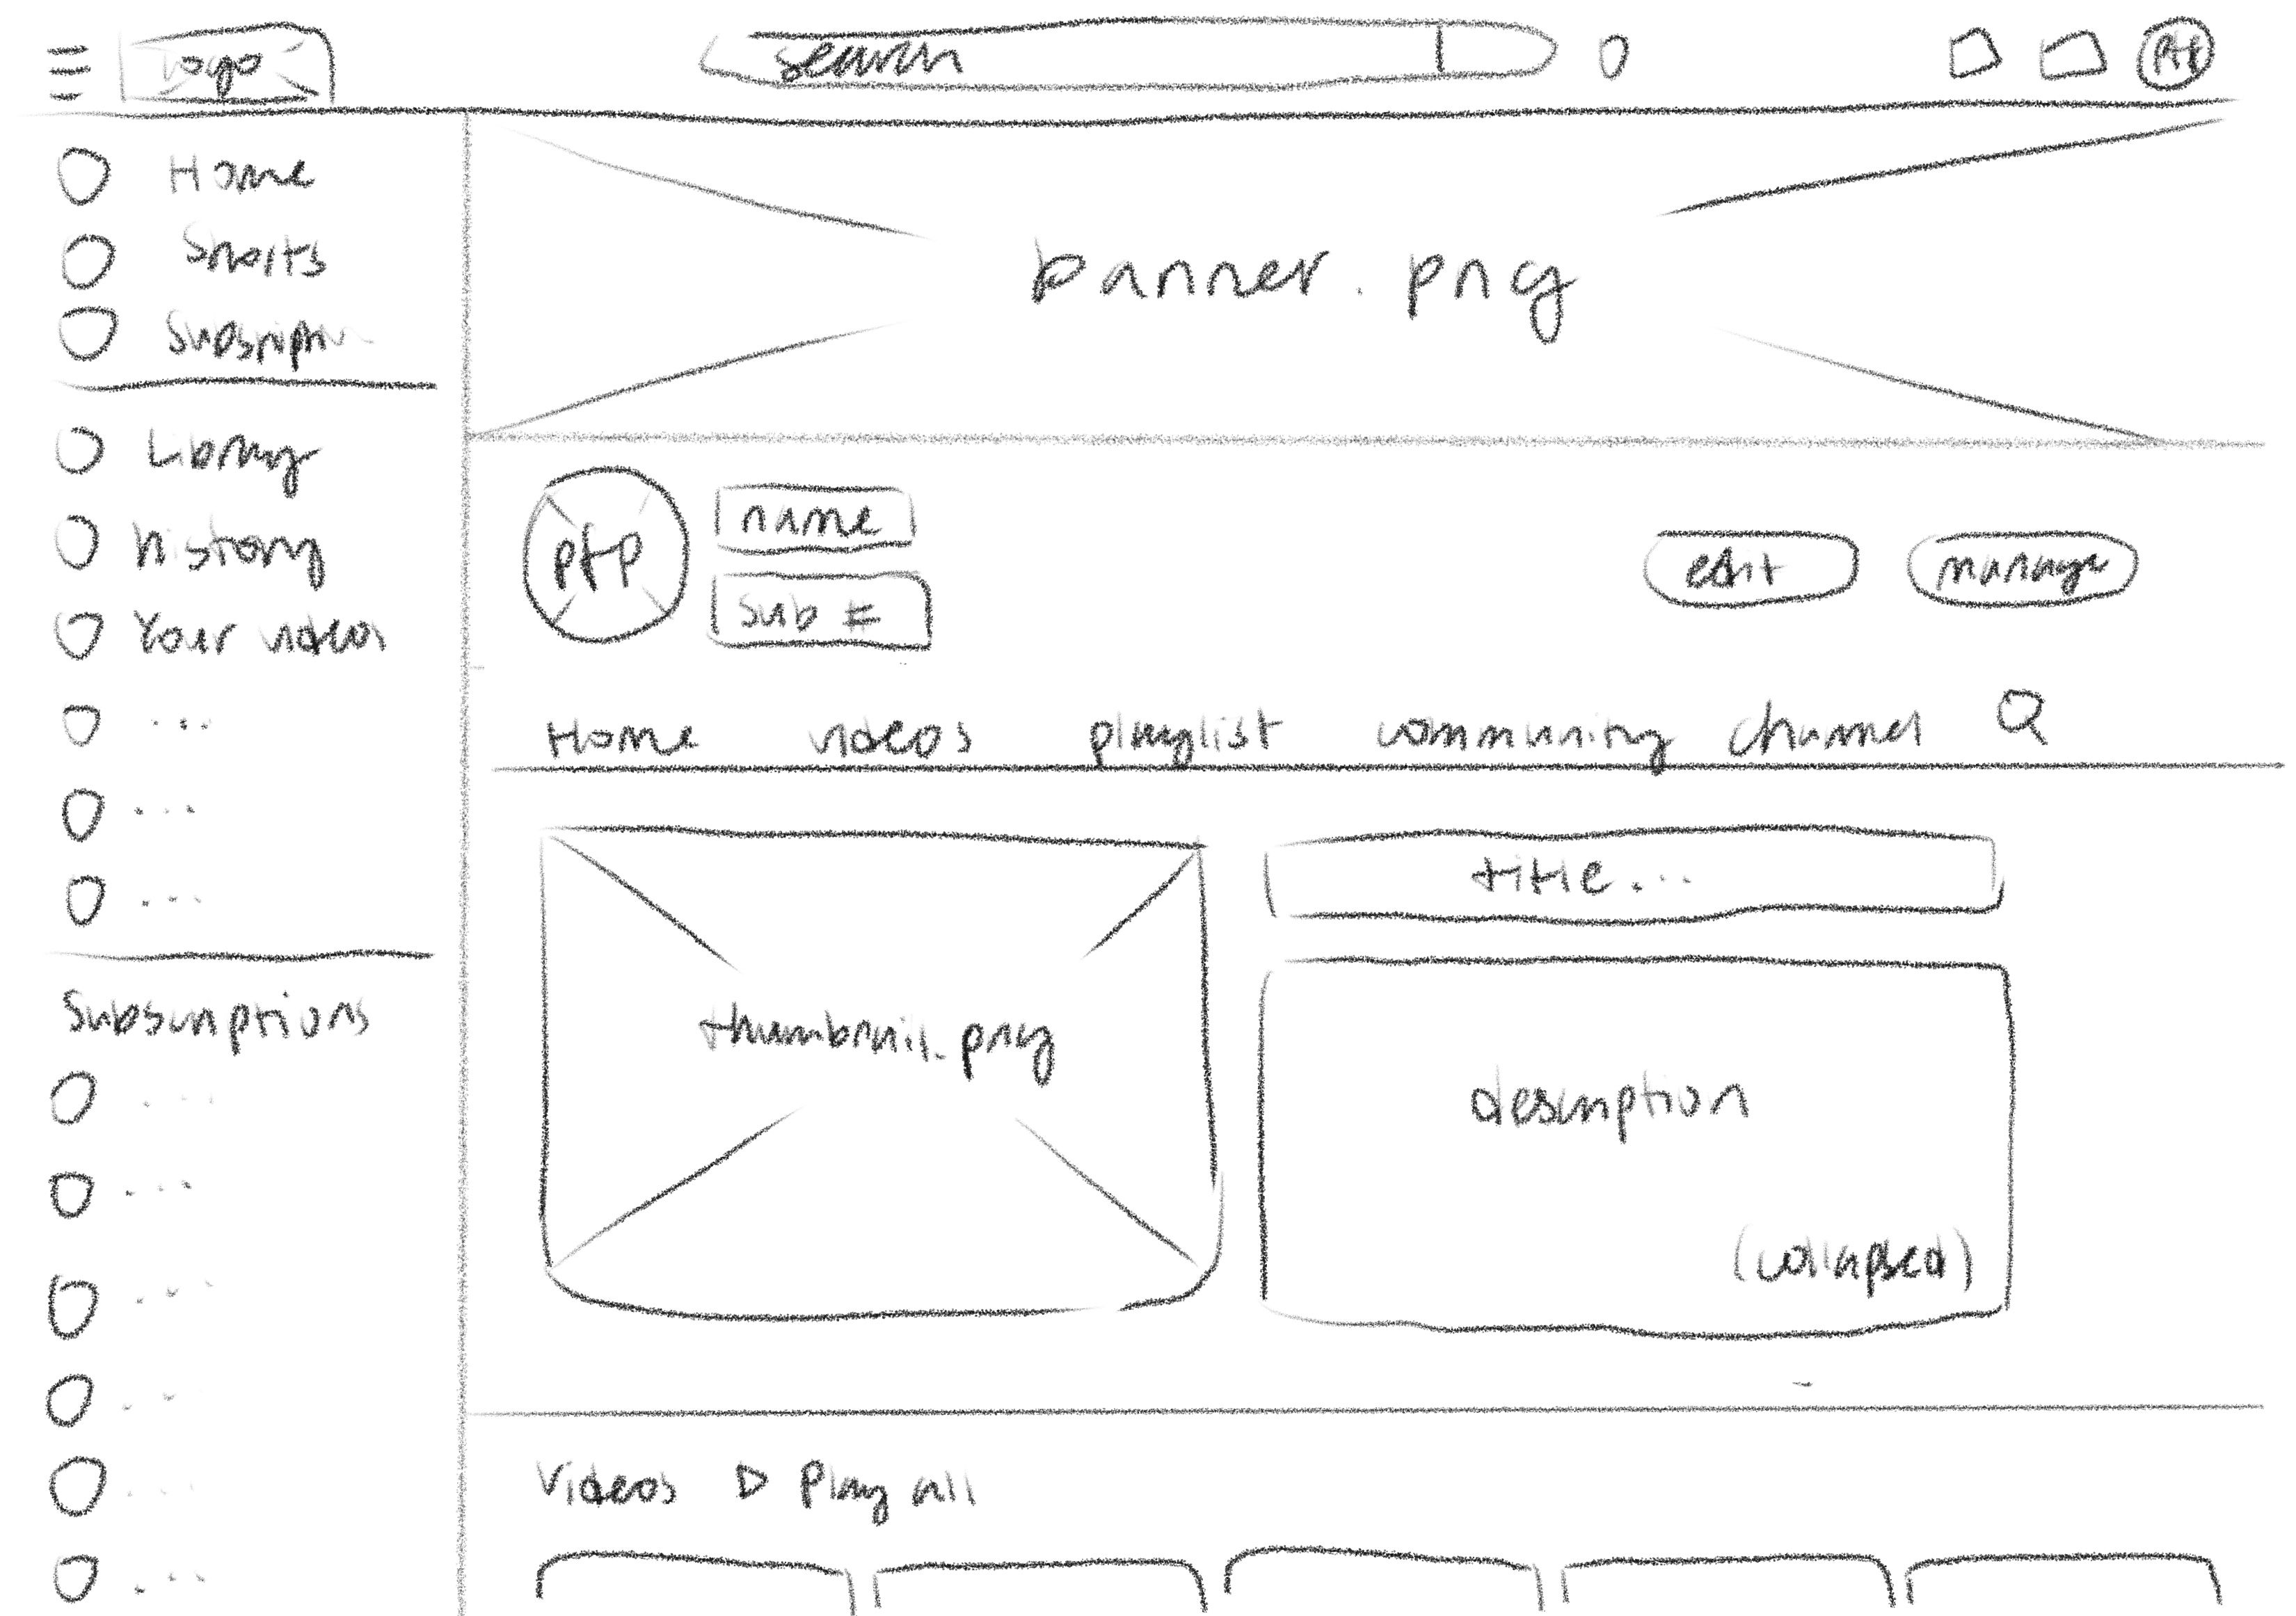 logo
search
pfp
Home
Shorts
Subscriptn
Library
history
Your videos
...
...
...
Subscriptions
...
...
...
...
...
...
banner.png
pfp
name
sub #
edit
manage
Home videos playlist community channel
thumbnail.png
title...
description
(collapsed)
Videos ▷ Play all